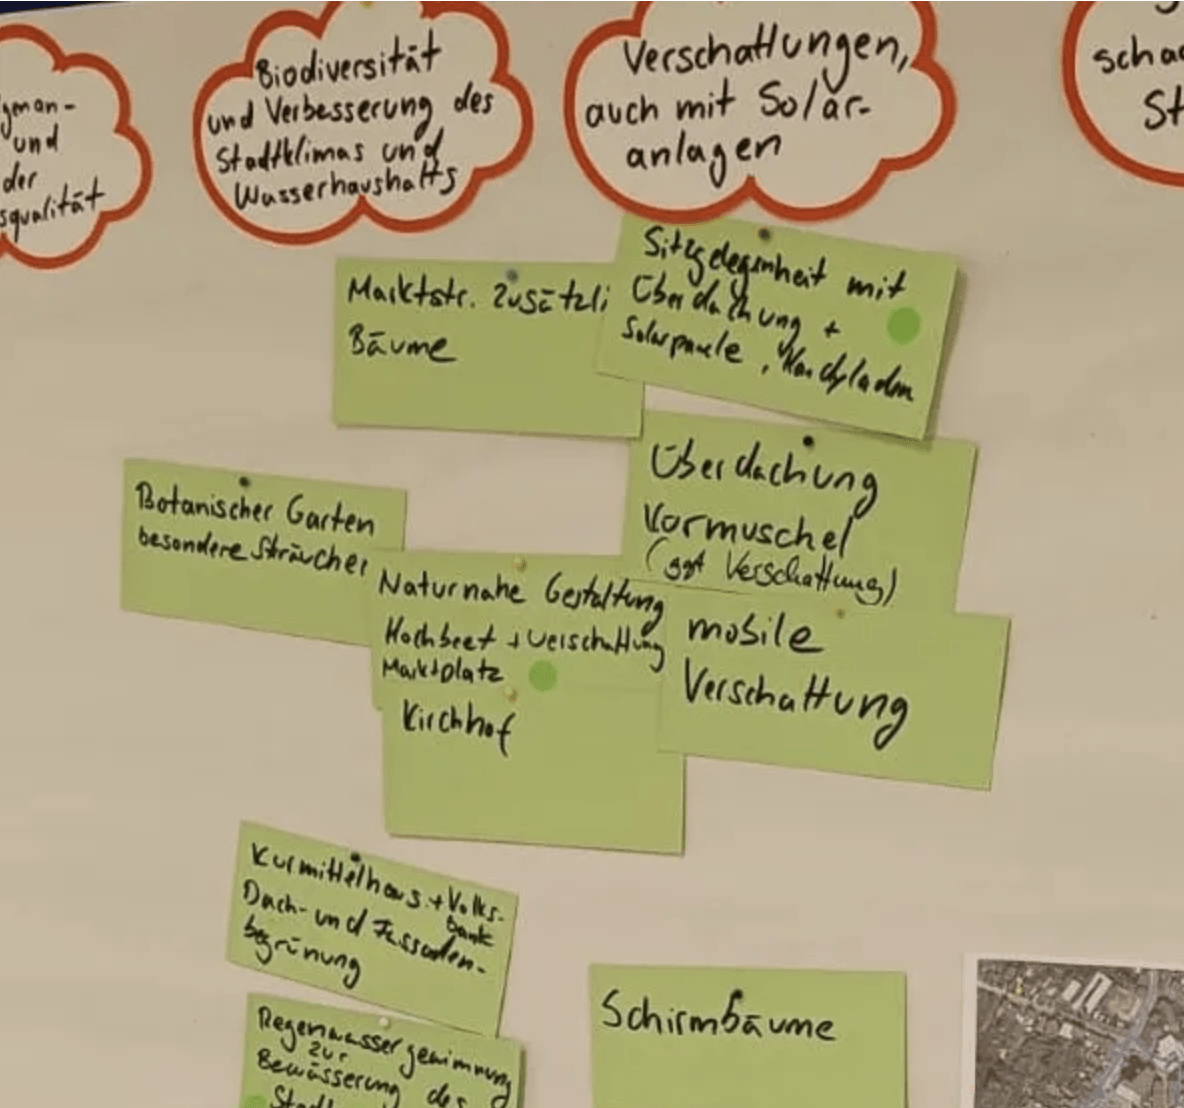 und
der
Biodiversität
und Verbesserung des
Stadtklimas und
Wasserhaushalts
Verschattungen,
auch mit Solar-
anlagen
Marktstr. Zusätzli
Bäume
Sitzgelegenheit mit
Überdachung +
Solarpanele, Handyladen
Überdachung
Kormuschel
(ggf Verschattung)
Botanischer Garten
besondere Sträucher
Naturnahe Gestaltung
Hochbeet + Verschattung
Marktplatz
Kirchhof
mobile
Verschattung
Kurmittelhaus + Volks-
bank
Dach- und Fassaden-
begrünung
Schirmbäume
Regenwassergewinnung
zur
Bewässerung des